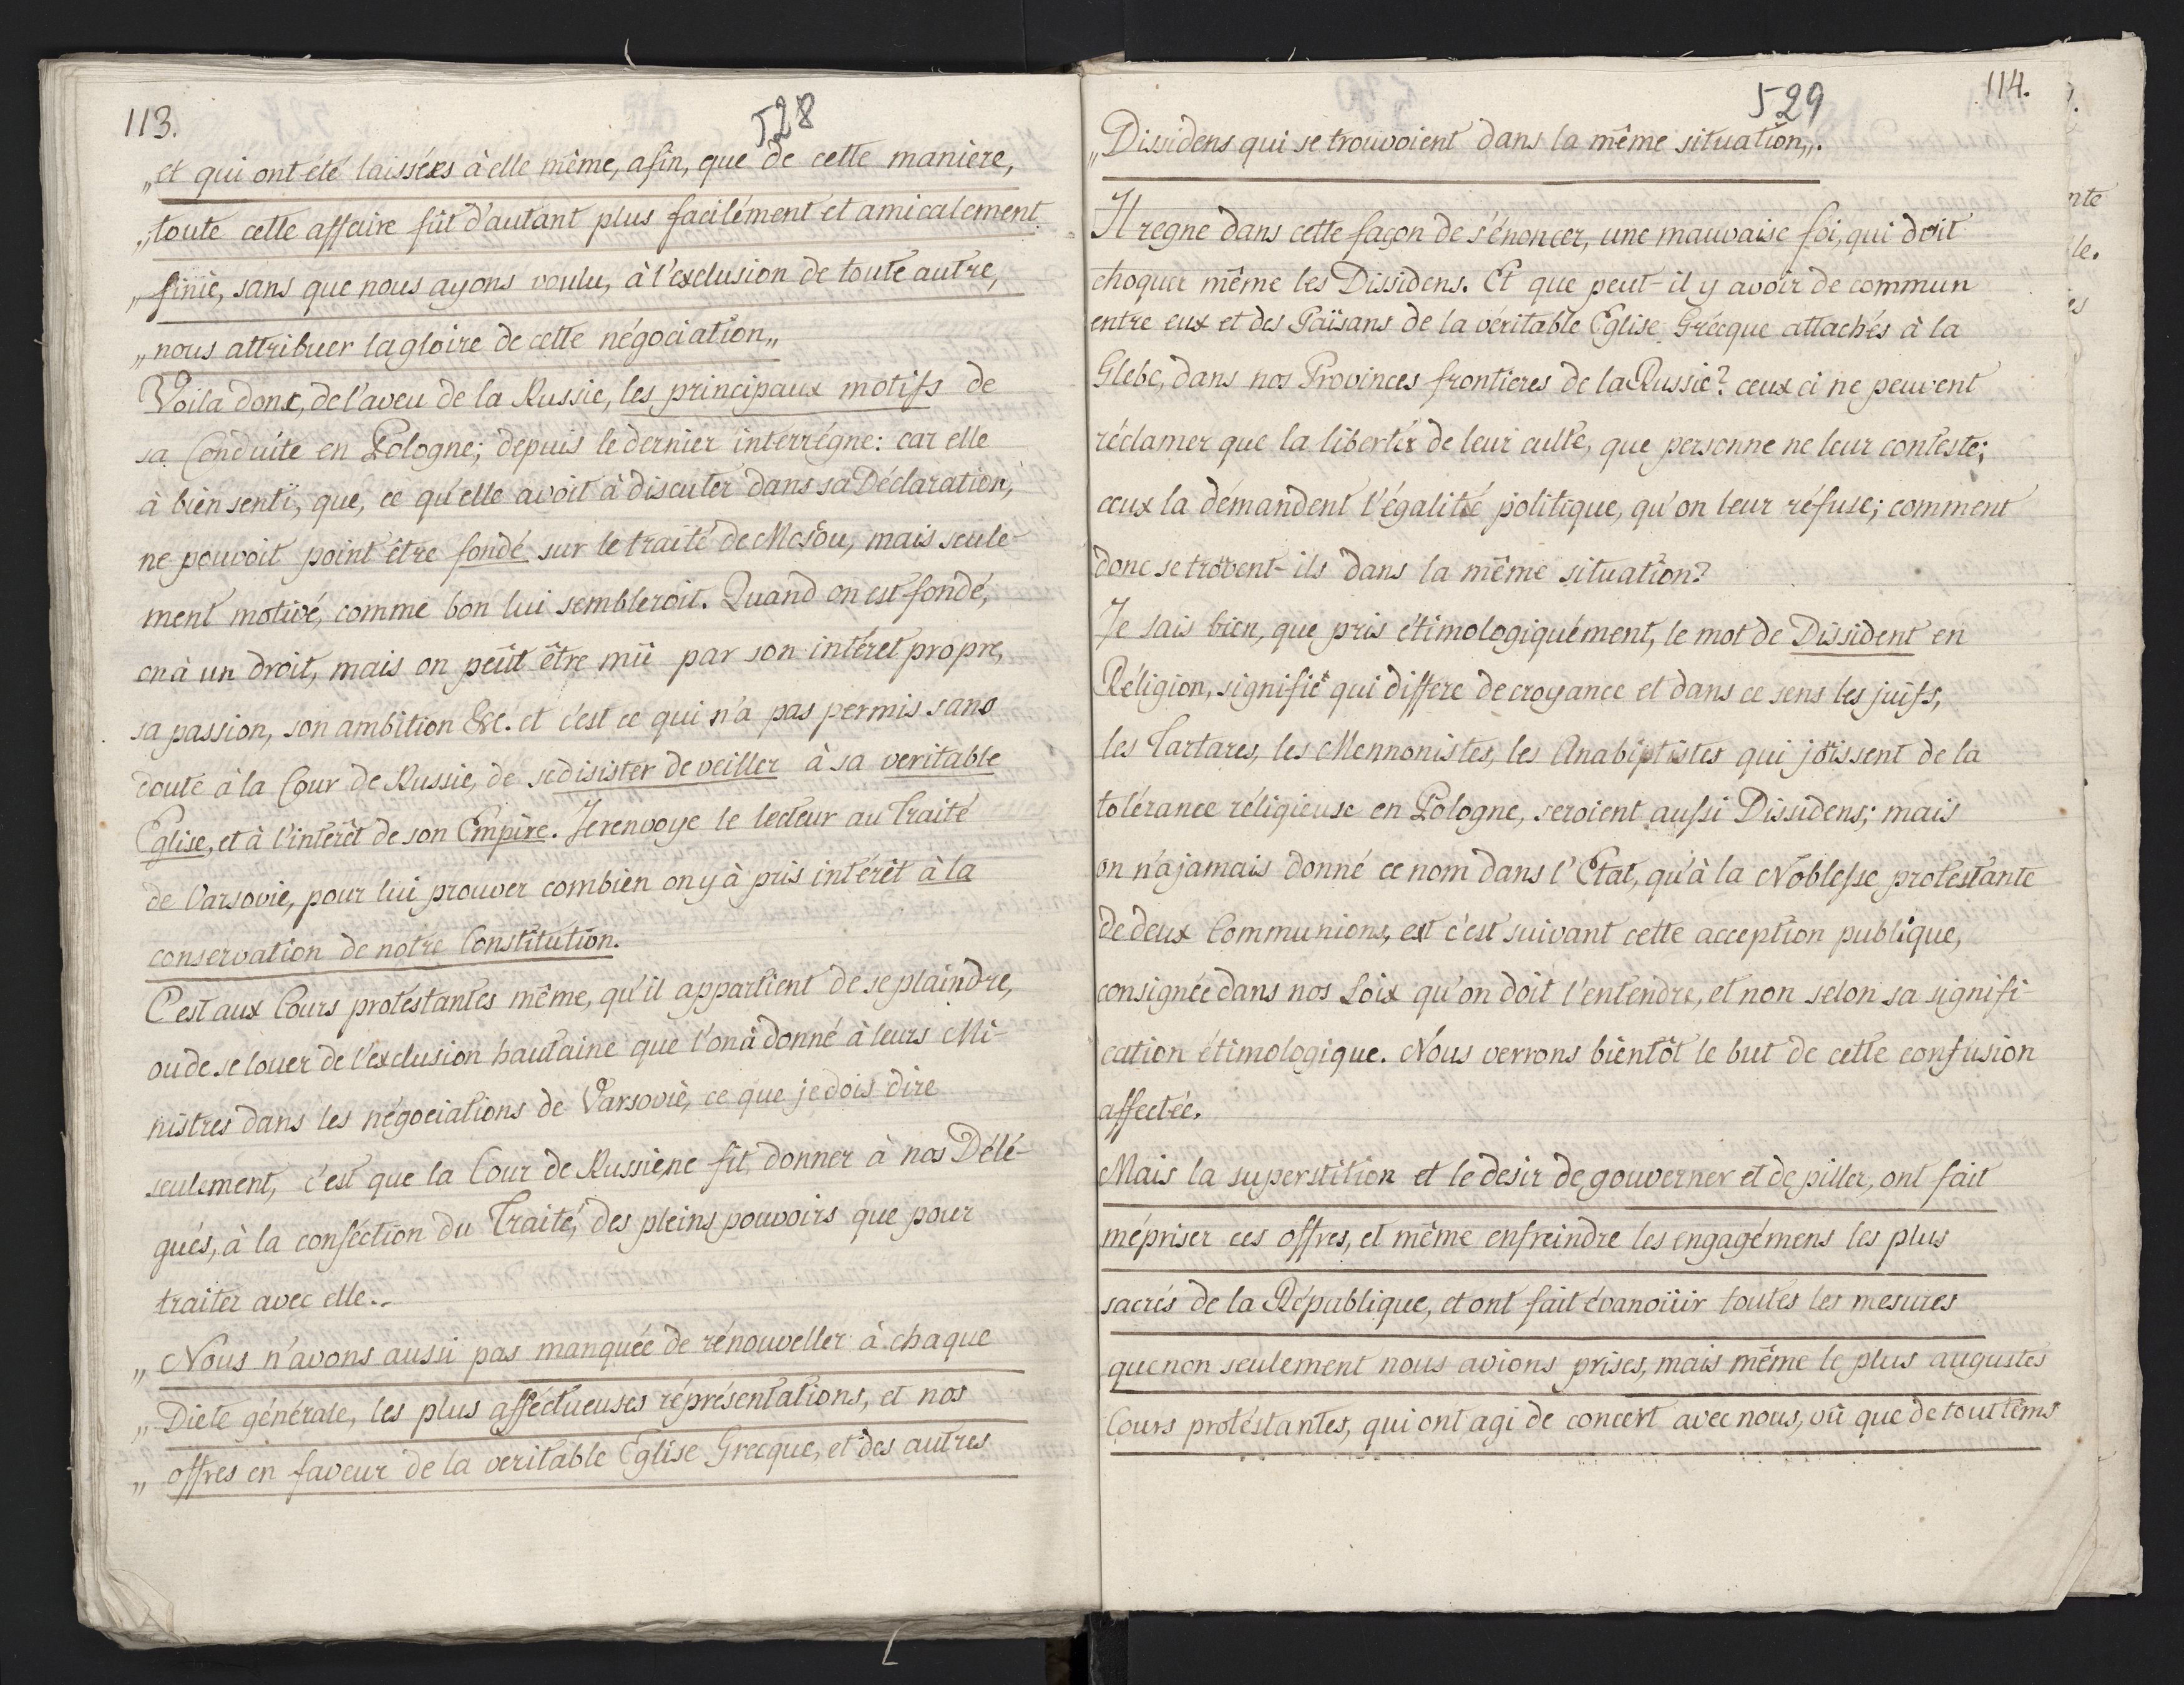 113.
528
„et qui ont été laissées à elle même, afin, que de cette maniere,
„toute cette affaire fût d'autant plus facilément et amicalement
„finie, sans que nous ayons voulu, à l'exclusion de toute autre,
„nous attribuer la gloire de cette négociation„
Voila donc, de l'aveu de la Russie, les principaux motifs de
sa Conduite en Pologne; depuis le dernier interrégne: car elle
à bien senti, que, ce qu'elle avoit à discuter dans sa Déclaration,
ne pouvoit point être fondé sur le traité de Moscou, mais seule-
ment motivé, comme bon lui sembleroit. Quand on est fondé,
on à un droit, mais on peût être mû par son intéret propre,
sa passion, son ambition &c. et c'est ce qui n'a pas permis sans
doute à la Cour de Russie, de se disister de veiller à sa veritable
Eglise, et à l'intérêt de son Empire. Je renvoye le lecteur au Traité
de Varsovie, pour lui prouver combien on y à pris intérêt à la
conservation de notre Constitution.
C'est aux Cours protestantes même, qu'il appartient de se plaindre,
ou de se louer de l'exclusion hautaine que l'on à donné à leurs Mi-
nistres dans les négociations de Varsovie, ce que je dois dire
seulement, c'est que la Cour de Russie, ne fit donner à nos Délé-
gués, à la conféction du Traité, des pleins pouvoirs que pour
traiter avec elle..
„Nous n'avons aussi pas manquée de rénouveller à chaque
„Diete générale, les plus afféctueuses réprésentations, et nos
„offres en faveur de la veritable Eglise Grecque, et des autres
529
114.
„Dissidens qui se trouvoient dans la même situation„.
Il regne dans cette façon de s'énoncer, une mauvaise foi, qui doit
choquer même les Dissidens. Et que peut-il y avoir de commun
entre eux et des Païsans de la véritable Eglise Grécque attachés à la
Glebe, dans nos Provinces frontieres de la Russie? ceux ci ne peuvent
réclamer que la liberté de leur culte, que personne ne leur conteste;
ceux la démandent l'égalité politique, qu'on leur réfuse; comment
donc se trovent-ils dans la même situation?
Je sais bien, que pris étimologiquément, le mot de Dissident en
Réligion, signifie qui differe de croyance et dans ce sens les juifs,
les Tartares, les Mennonistes, les Anabiptistes qui jöissent de la
tolérance réligieuse en Pologne, seroient aussi Dissidens; mais
on n'a jamais donné ce nom dans l'Etat, qu'à la Noblesse protestante
de deux Communions, et c'est suivant cette acception publique,
consignée dans nos Loix qu'on doit l'entendre, et non selon sa signifi-
cation étimologique. Nous verrons bientôt le but de cette confusion
affectée.
Mais la superstition et le desir de gouverner et de piller, ont fait
mépriser ces offres, et même enfreindre les engagémens les plus
sacrés de la République, et ont fait évanoüir toutes les mesures
que non seulement nous avions prises, mais même le plus augustes
Cours protéstantes, qui ont agi de concert avec nous, vû que de tout tems
nte
le.
es